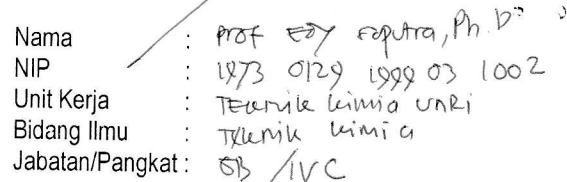 Nama : Prof Edy Saputra, Ph.D
NIP : 1973 0129 1999 03 1002
Unit Kerja : Teknik Kimia UNRI
Bidang Ilmu : Teknik Kimia
Jabatan/Pangkat : GB /IVC